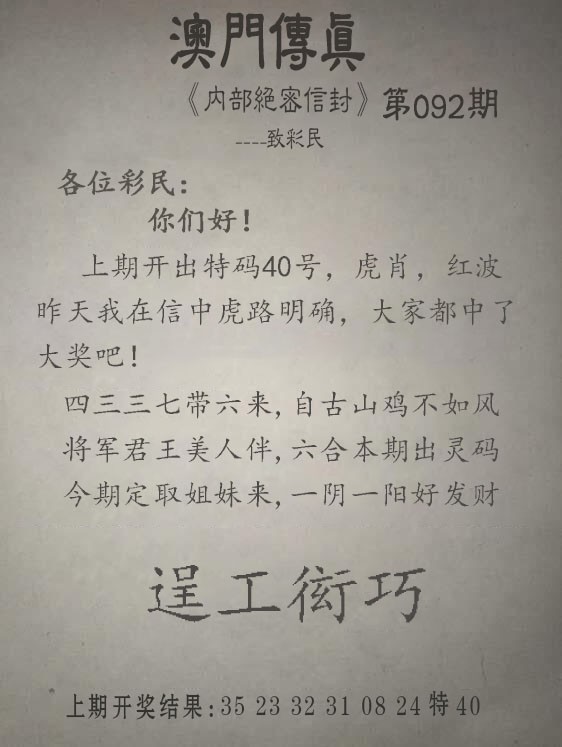 澳門傳眞
《内部絕密信封》第092期
----致彩民
各位彩民:
你们好!
上期开出特码40号，虎肖，红波
昨天我在信中虎路明确，大家都中了
大奖吧!
四三三七带六来,自古山鸡不如风
将军君王美人伴,六合本期出灵码
今期定取姐妹来,一阴一阳好发财
逞工衒巧
上期开奖结果:35 23 32 31 08 24特40